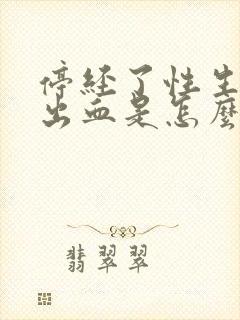 停经了性生
出血是怎麼
翡翠翠